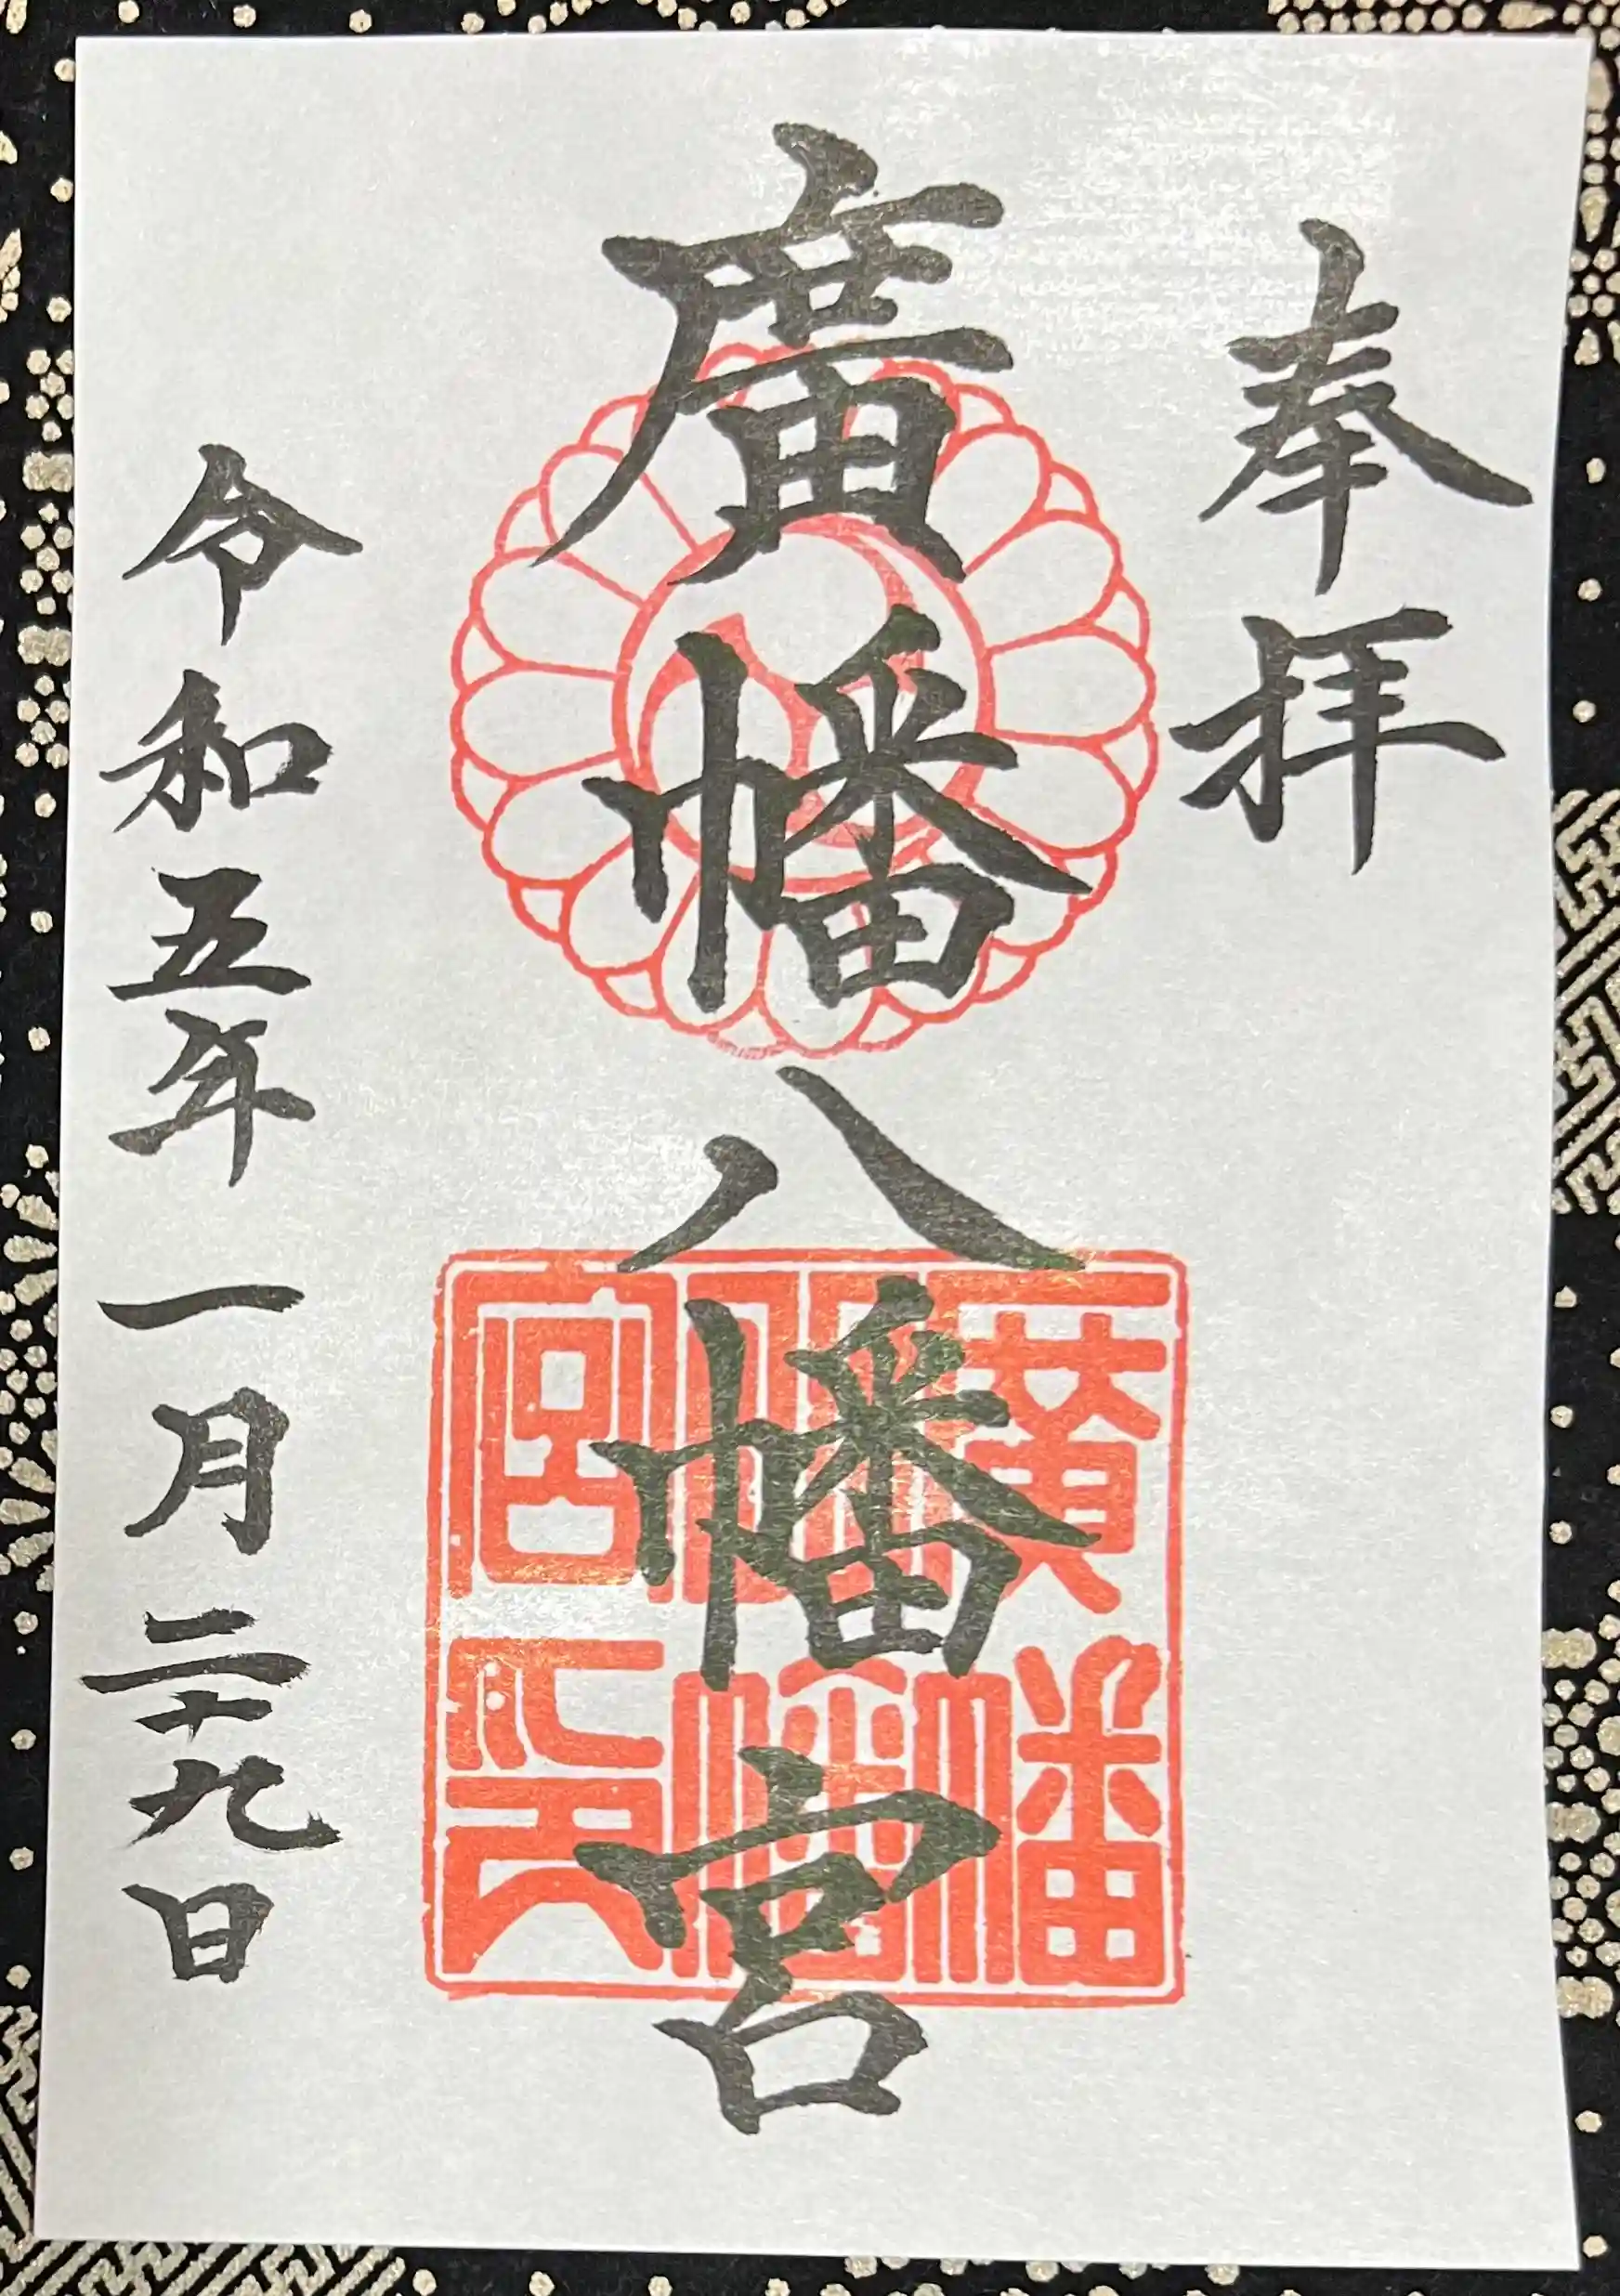 奉拝
廣幡八幡宮
廣幡八幡宮印
令和五年一月二十九日